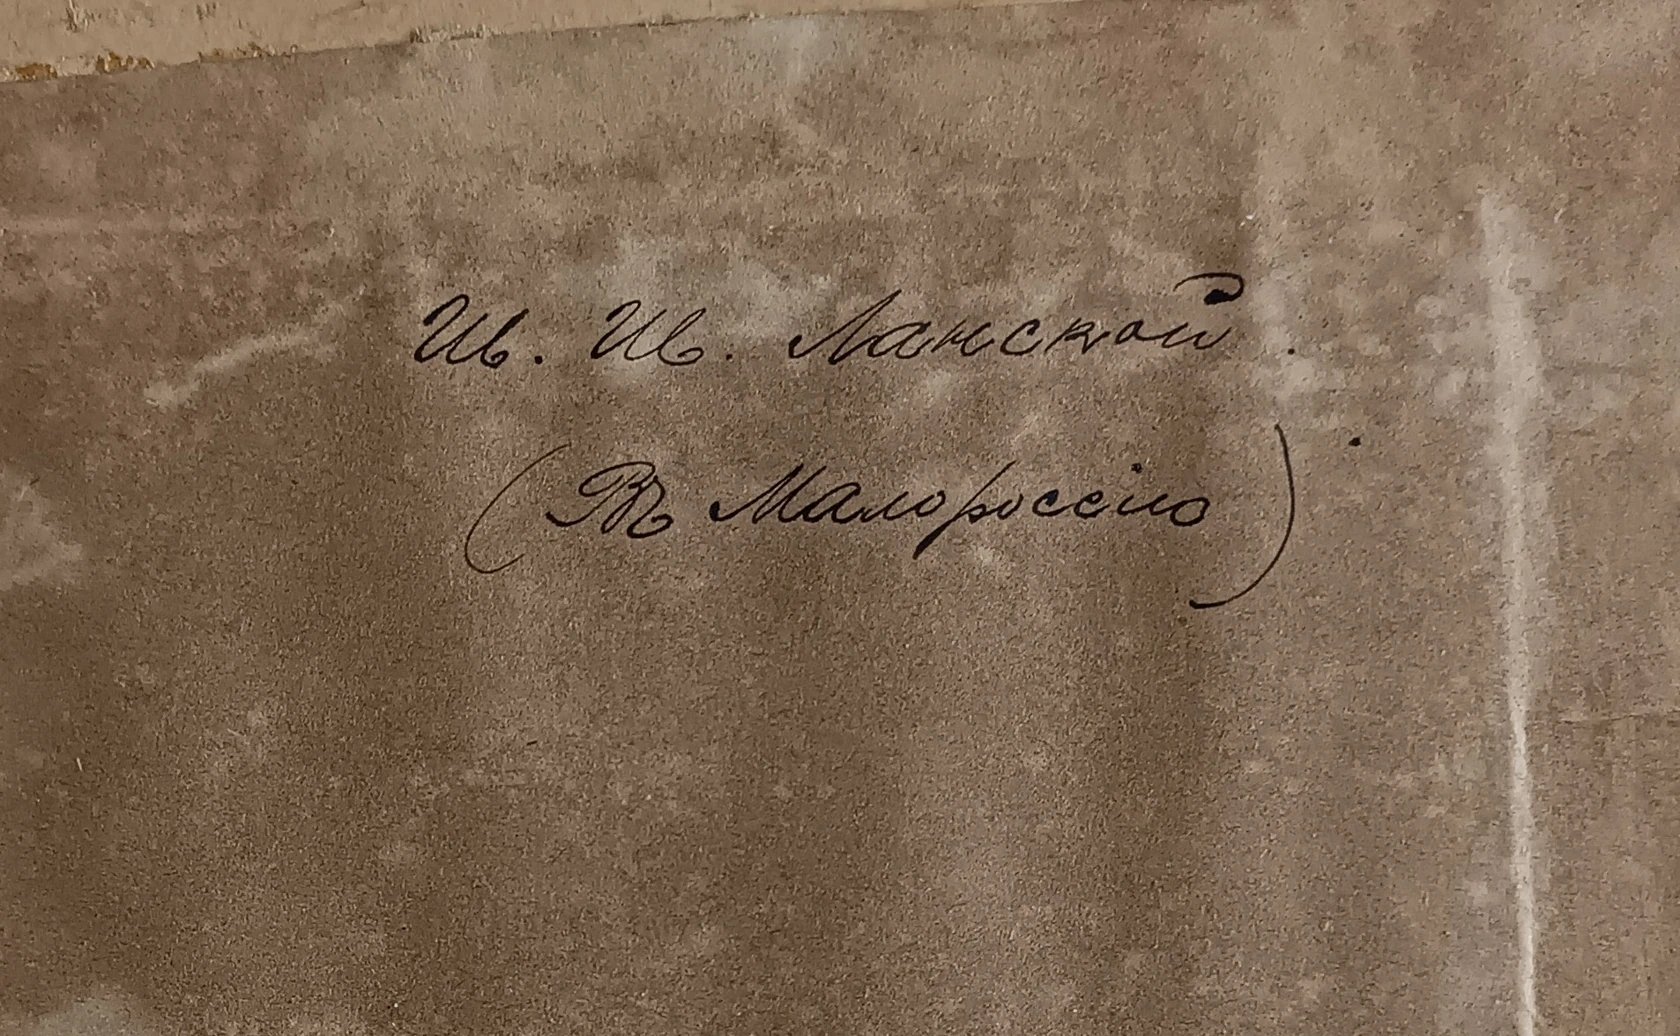 Ив. Ив. Ланской.
(Въ Малороссію).